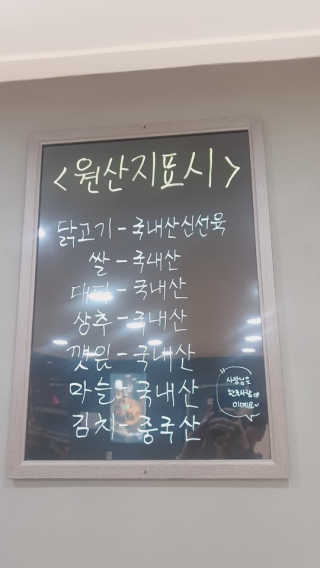 <원산지표시>
닭고기-국내산신선육
쌀-국내산
대파-국내산
상추-국내산
깻잎-국내산
마늘-국내산
김치-중국산
사장님은
이에요